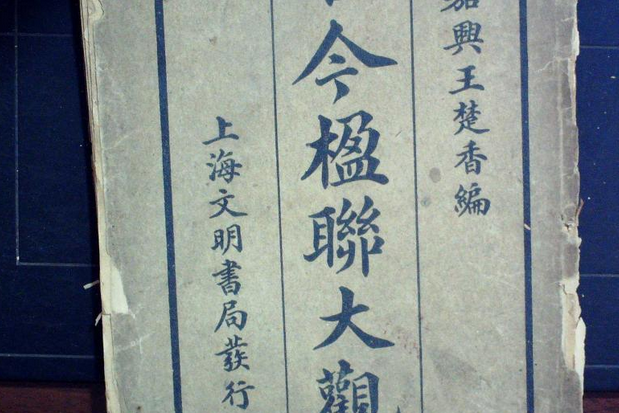 嘉興王楚香編
今楹聯大觀
上海文明書局發行